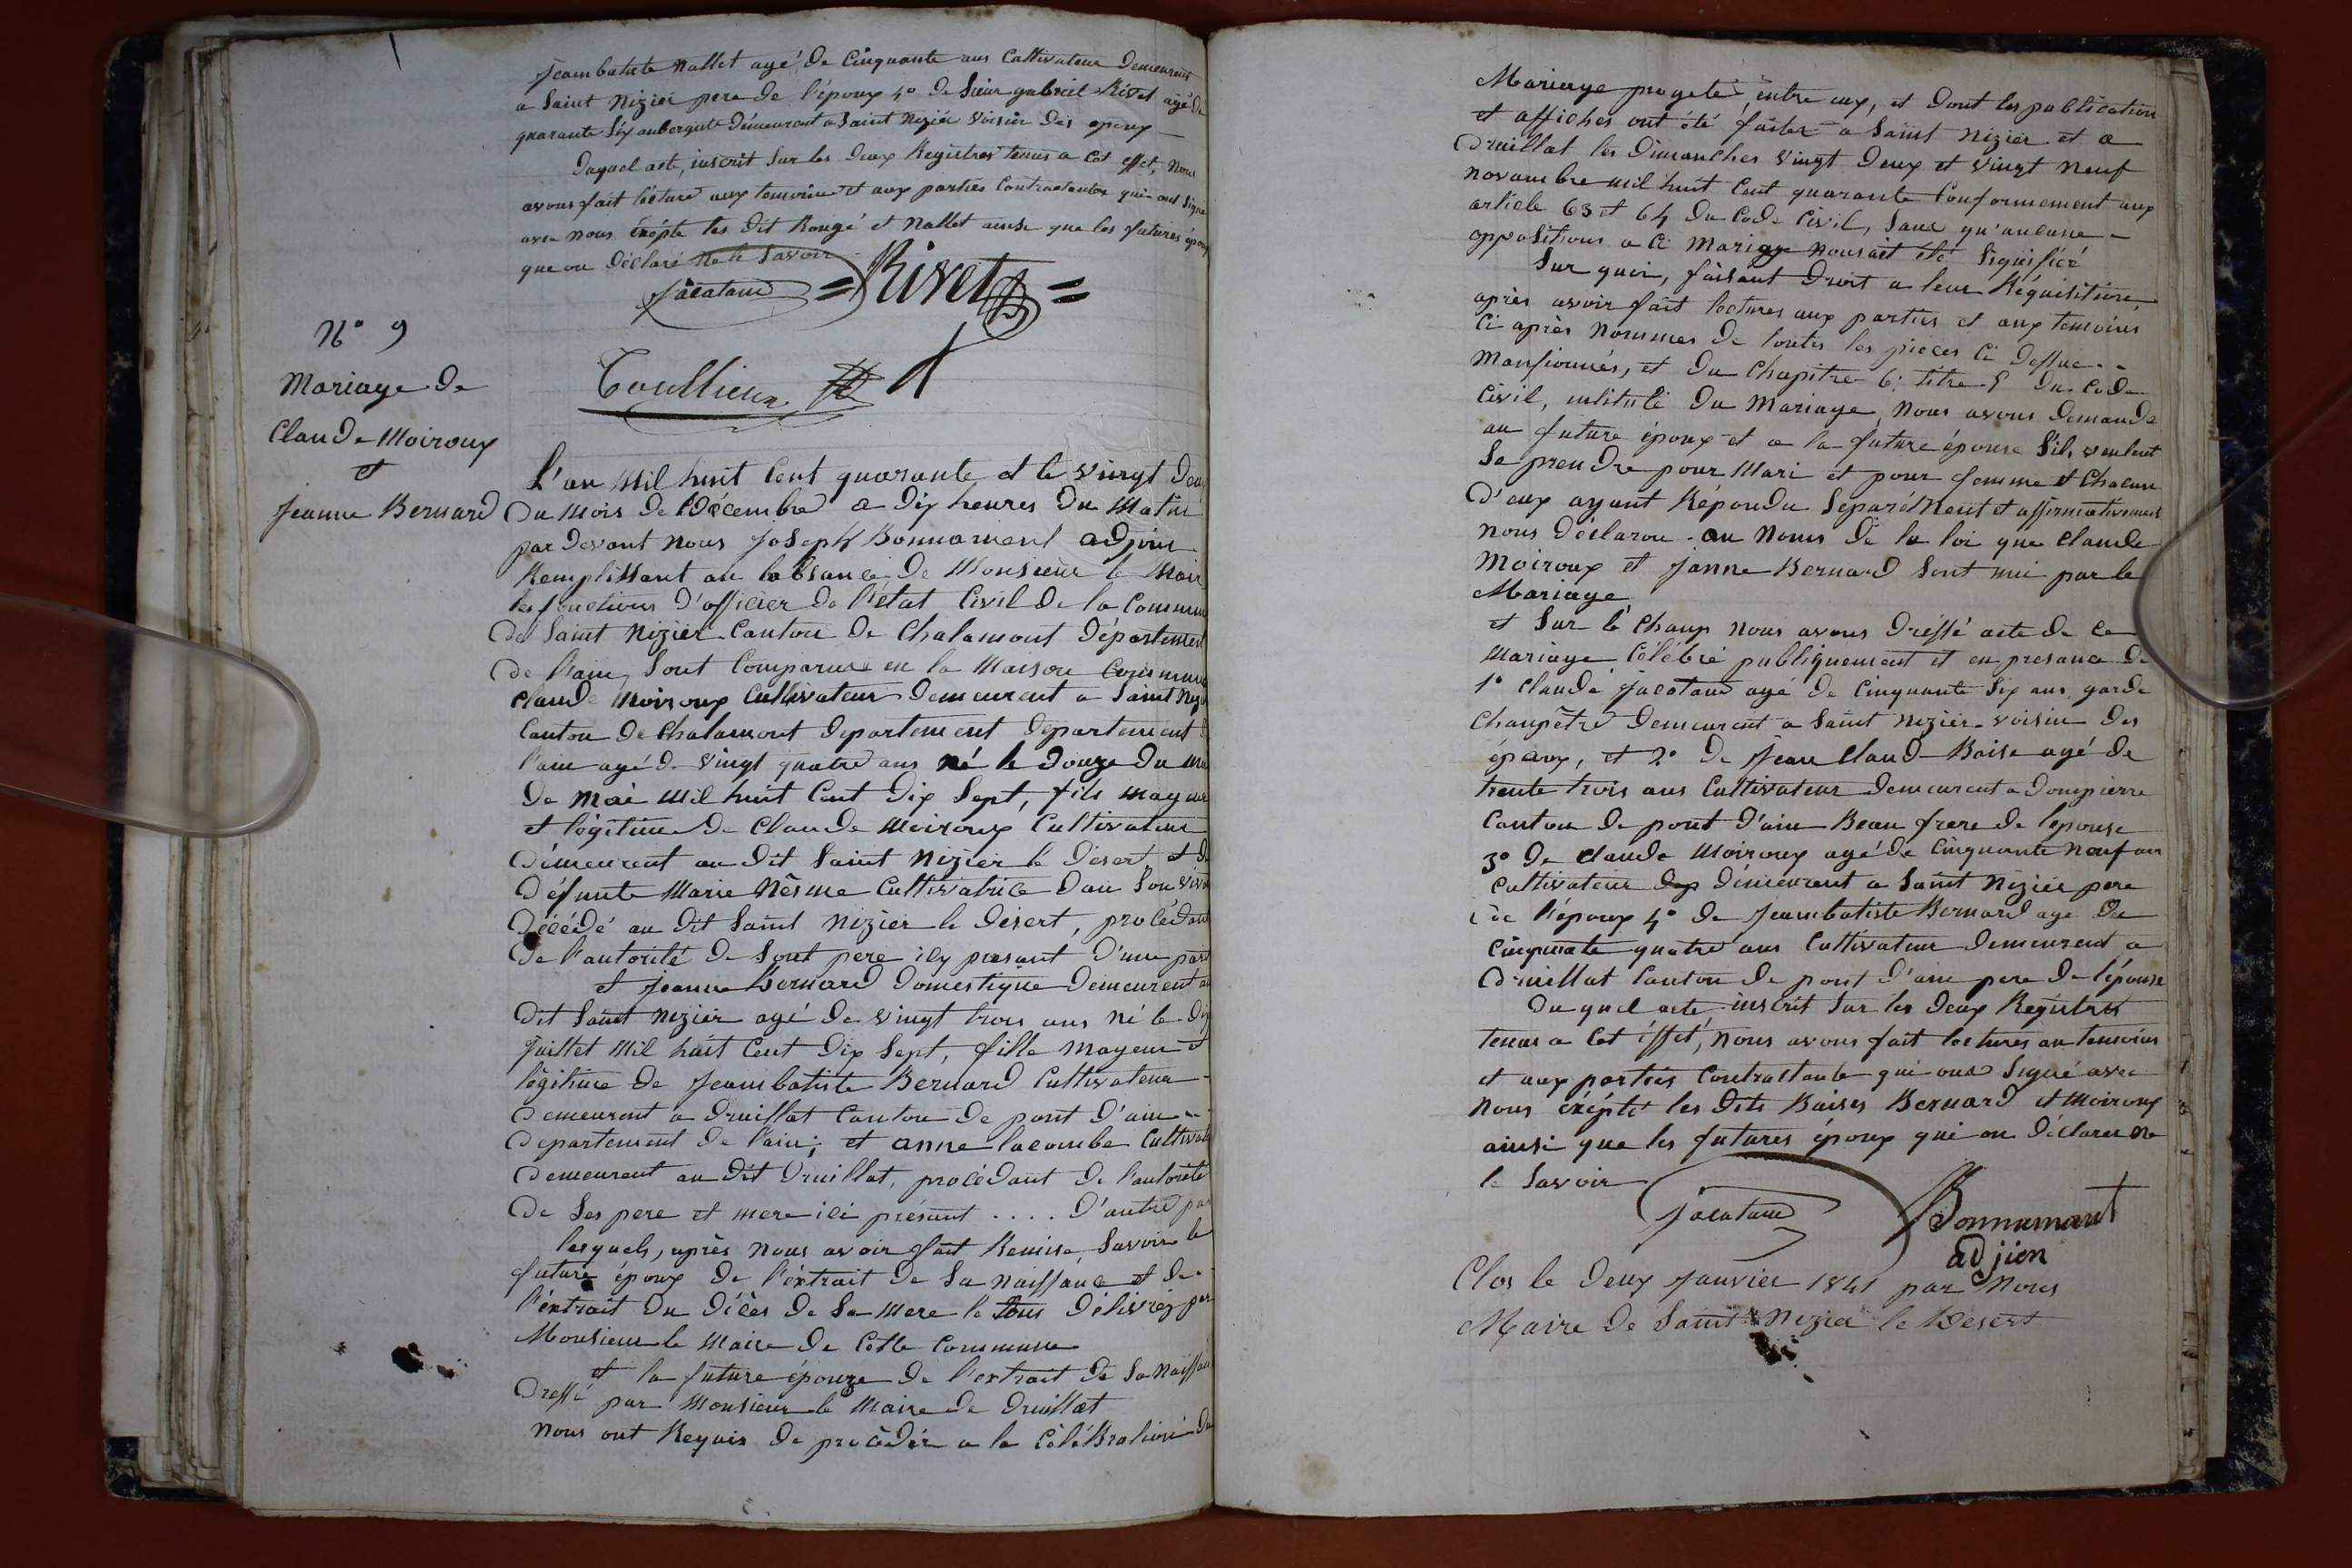 Jeambatiste Nallet agé de Cinquante ans Cultivateur demeurent
a Saint Nizier pere de l'époux 4° de Sieur gabriel Rivet agé de
quarante Six aubergiste démeurent a Saint Nizier voisin des epoux
Duquel acte, inscrit Sur les deux Registres tenus a Cet effet, Nous
avons fait lecture aux temoins et aux parties Contractantes qui ont Signé
avec nous éxépte les dit Rongé et Nallet ainsi que les futures époux
que on déclaré ne le Savoir
Jacatau = Rivet =
Toullieux
N° 9
Mariage de
Claude Moiroux
et
Jeanne Bernard
L'an Mil huit Cent quarante et le vingt deux
du Mois de Décembre a dix heures du Matin
par devant nous Joseph Bonnament adjoin
Remplissant au labsance de Monsieur le Maire
les fonctions d'officier de l'état Civil de la Commune
de Saint Nizier Canton de Chalamont Département
de l'ain, Sont Comparus en la Maison Commune
Claude Moiroux Cultivateur demeurent a Saint Nizier
Canton de Chalamont departement departement de
l'ain agé de vingt quatre ans né le douze du mois
de Mai Mil huit Cent dix Sept, fils mageur
et légitime de Claude Moiroux Cultivateur
démeurent au dit Saint Nizier le désert, et de
défunte Marie Nêsme Cultivatrice dan Son vivant
décédé au dit Saint Nizier le désert, procédant
de l'autorité de Sont pere icy present d'une part
et Jeanne Bernard domestique demeurent au
dit Saint Nizier agé de vingt trois ans né le dix
Juillet Mil huit Cent dix Sept, fille mageur et
légitime de Jeambatiste Bernard Cultivateur
demeurent a Druillat Canton de pont d'ain
departement de l'ain; et anne lacombe Cultivat
demeurent au dit Druillat, procédant de l'autorité
de Ses pere et mere ici présent .... d'autre part
lesquels, après nous avoir fait Remise Savoir le
future époux de l'éxtrait de Sa naissance et de
l'éxtrait du décès de Sa mere le tous délivrés par
Monsieur le Maire de Cette Commune
et la future épouze de l'extrait de Sa Naissance
dressé par Monsieur le Maire de Druillat
nous ont Requis de procéder a la Célébration du
Mariage progeté entre eux, et dont les publication
et affiches ont été faites a Saint Nizier et a
Druillat les dimanches vingt deux et vingt neuf
novambre mil huit Cent quarante Conformement aux
article 63 et 64 du Code Civil, Sans qu'aucune
oppositions a Ce Mariage nous ait été Signifiée
Sur quoi, faisant droit a leur Réquisitions
après avoir fait lectures aux parties et aux temoins
Ci après nommes de toutes les pieces Ci dessue
mansionnés, et du Chapitre 6. titre 5 du Code
Civil, intitulé du Mariage, nous avons demandé
au future époux et a la future épouse S'ils veulent
Se prendre pour Mari et pour femme et Chacun
d'eux ayant Répondu Separément et affirmativement
nous déclaron au Noms de la loi que Claude
Moiroux et Janne Bernard Sont uni par le
Mariage
et Sur le Champ nous avons dréssé acte de Ce
Mariage Célébré publiquement et en presance de
1° Claude Jacatau agé de Cinquante Six ans, garde
Champêtre demeurent a Saint Nizier voisin des
époux, et 2° de Jean Claud Baise agé de
trente trois ans Cultivateur demeurent a Dompierre
Canton de pont d'ain Beau frere de l'epouse
3° de Claude Moiroux agé de Cinquante neuf an
Cultivateur démeurent a Saint Nizier pere
de l'époux 4° de Jeambatiste Bernard age de
Cinquate quatre ans Cultivateur demeurent a
Druillat Canton de pont d'ain pere de l'épouse
Du quel acte inscrit Sur les deux Registres
tenus a Cet éffet, nous avons fait lectures au temoins
et aux parties Contractante qui ons Signé avec
nous éxépté les dits Baises Bernard et Moiroux
ainsi que les futures époux qui on déclaré ne
le Savoir
Jacatau Bonnament
adjien
Clos le deux Janvier 1841 par Nous
Maire de Saint Nizier le Desert